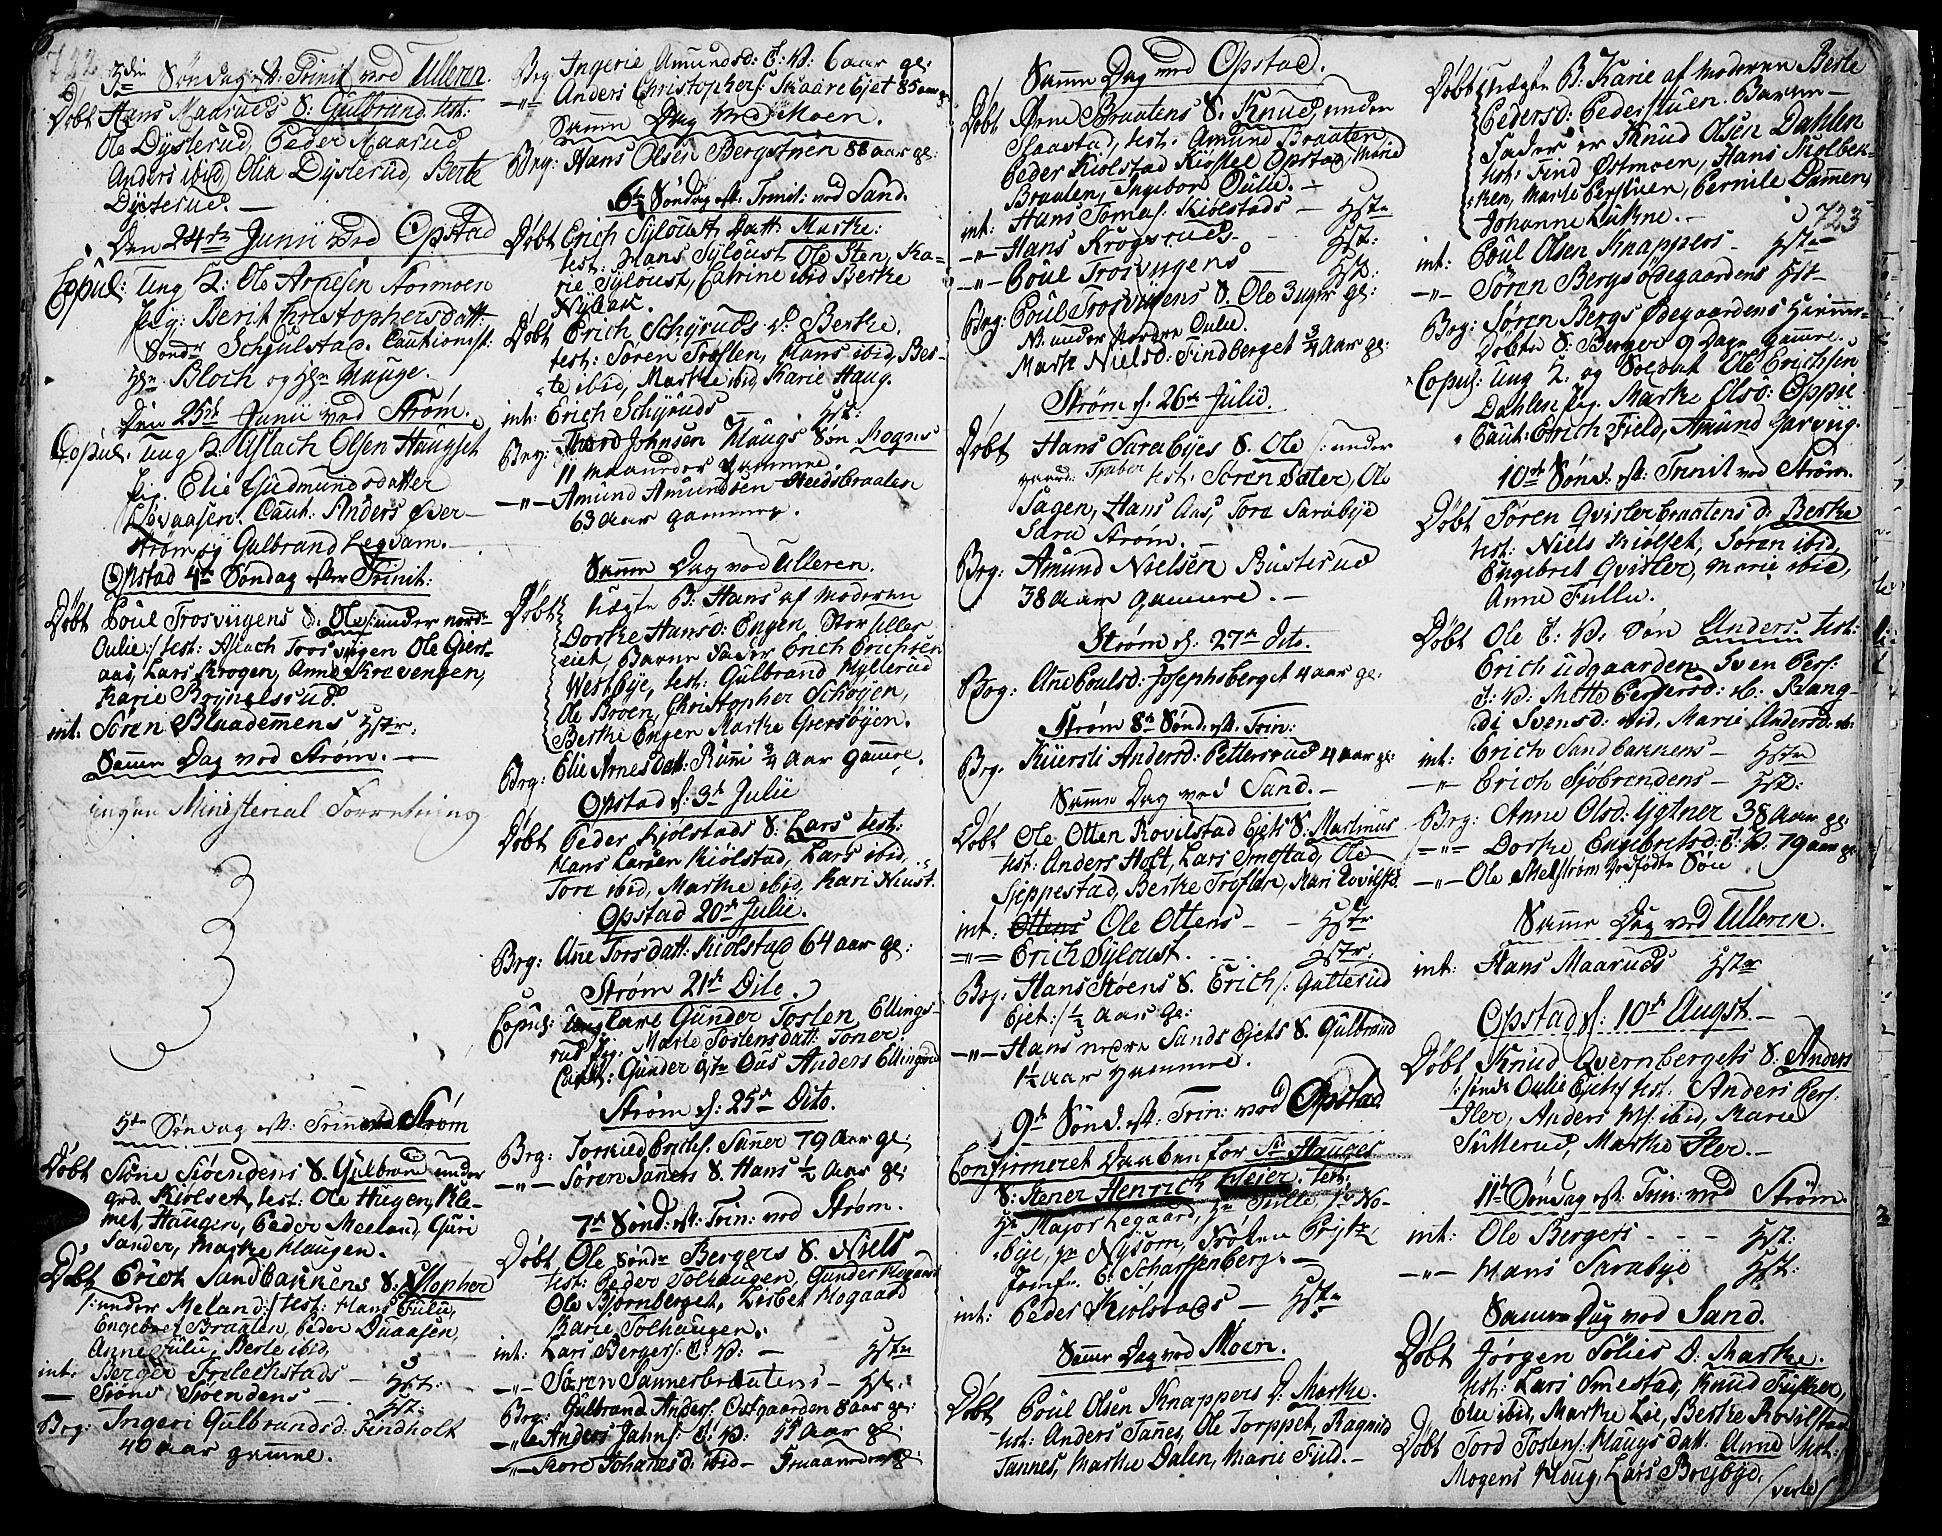 722
3die Søndag eft: Trinit ved Ulleren.
Døbt Hans Maaruds S: Gulbrand. test:
Ole Dysterud, Peder Maarud
Anders ibid, Olia Dysterud, Berte
Dysterud. —
Den 24de Junii ved Opstad
Copul: Ung K: Ole Arnesen Aarmoen
pig: Berit Christophersdatt:
Søndr Schiulstad. Cautionist:
Hr Bloch og Hr Hauge.
Den 25de Junii ved Strøm.
Copul: Ung K: Aslach Olsen Haugset
pig. Elie Gudmundsdatter
Løvaasen. Caut: Anders Over-
strøm og Gulbrand Legdam.
Opstad 4de Søndag efter Trinit:
Døbt Poul Trosvigens S: Ole /: under nord-
Oulie:/ test: Aslach Trosvigen Ole Giers-
aas, Lars Krogen, Anne Kravengen,
Karie Brynelsrud.
int: Søren Blaademens Hstr:
Samme Dag ved Strøm. —
ingen Ministerial Forretning
5te Søndag eft: Trin ved Strøm
Døbt Sione Siøendens S: Gulbrand under
grd. Kiølset, test: Ole Haugen, Kle-
met Haugen, Peder Meeland, Guri
Sander, Marthe Haugen.
Døbt Erich Sandbakkens S: Stopher
/: under Meland:/ test: Hans Fulu,
Engebret Braaten, Peder Duaasen,
Anne Fulu, Berte ibid,
int: Berger Froleichstads — Hst:
— Sions Siøendens — Hst:
Brg: Ingeri Gulbrandsd: Findholt
40 aar gamel.
Brg: Ingerie Amundsd: E: V: 6 aar ge:
—"— Anders Christophers: Skaare Ejet 85 aar g:
Samme Dag ved Moen.
Brg: Hans Olsen Bergstuen 88 aar ge:
6te Søndag eft: Trinit: ved Sand.
Døbt Erich Syloust Datt: Marthe:
test: Hans Syloust Ole Sten, Ka-
rie Syloust, Catrine ibid Berthe
Nybak.
Døbt Erich Schyruds D: Berthe.
test: Søren Trøften, Hans ibid, Ber-
te ibid, Marthe ibid, Karie Haug.
int: Erich Schyruds Hst:
Brg: Thord Johnsen Haugs Søn Mogns
11 maaneder gamme
—"— Amund Amundsen Heedsbraaten
63 aar gamme.
Samme Dag ved Ulleren.
Døbt Uægte B: Hans af moderen
Dorthe Hansd: Engen Stor uller
eiet, Barnefader Erich Erichsen
Westbye, test: Gulbrand Myllerud
Ole Broen, Christopher Schøyen,
Berthe Engen Marthe Giersøyen.
Brg: Elie Arnesdatt: Rumi 3/4 Aar Gamle.
Opstad d: 3de Julii
Døbt Peder Kiølstads S: Lars test:
Hans Larsen Kiølstad, Lars ibid,
Tore ibid, Marthe ibid, Kari Niust.
Opstad 20de Julii.
Brg: Ane Torsdatt: Kiølstad 64 aar ge:
Strøm 21de Dito.
Copul: Ung Karl Gunder Tosten Ellings-
rud pig: Marte Tostensdatt: Toner
Caut: Gunder Ous Anders Ellingsrud
Strøm d: 25de Dito.
Brg: Torkild Erichs: Sanner 79 Aar ge:
—"— Søren Sanners S: Hans 1/2 Aar ge:
7de Sønd: eft: Trin: ved Strøm.
Døbt Ole Søndr Bergers S: Niels
test: Peder Tolhaugen, Gunder Mogaard
Ole Biørnberget, Lisbet Mogaard
Karie Tolhaugen.
int: Lars Bergers: E: V: — Hstr
—"— Søren Sannerbraatens — Hst:
Brg: Gulbrand Anders: Ostgaarden 8 aar ge:
—"— Anders Jahns: E: V: 11 Aar ge:
—"— Tore Johanesd: ibid —
Samme Dag ved Opstad.
Døbt Arne Braatens S. Knud, under
Slaastad, test: Amund Braaten,
Peder Kiølstad Kiøstel Opstad, Marie
Braaten, Ingebor Oulie. —
int: Hans Tomas: Kiølstads — Hstr
—"— Hans Krogsruds — Hst:
—"— Poul Trosvigens — Hst:
Brg: Poul Trosvigens S. Ole 3 uger ge:
N: under Nordre Oulie.
Marth Nielsd: Findberget 3/4 Aar ge:
Strøm d: 26de Julii.
Døbt Hans Sarabyes S. Ole /: under
gaard: Tiaber test: Søren Sater, Ole
Sagen, Hans Aas, Tore Sarabye
Sara Strøm. —
Brg: Amund Nielsen Busterud
38 Aar Gamle. —
Strøm d: 27de dito.
Brg: Ane Poulsd: Josephsberget 4 aar ge:
Strøm 8de Sønd: eft: Trin:
Brg. Kiersti Andersd: Pettersrud 4 aar ge:
Samme Dag ved Sand. —
Døbt Ole Otten Rovilstad Ejets S: Martinus
test: Anders Holt, Lars Smestad, Ole
Sieppestad, Berthe Trøften, Mari Rovilstd.
int: Ottens Ole Ottens — Hstr
—"— Erich Syloust . . . . Hstr.
Brg: Hans Støens S. Erich /: Gulterud
Ejet:/ 1/2 Aar Ge:
—"— Hans nedre Sands Ejets S. Gulbrand
1 1/2 Aar gammel.
9de Sønd: eft: Trin: ved Opstad
Confirmeret Daaben for Sr Hauges
S: Stener Henrich Meier. test:
Hr Major Legaard, Hr Tulle, Sr No-
bye, Hr Nysom, Frøken
Jomfr. C: Scharffenberg. —
int: Peder Kiølstads — Hstr
Samme Dag ved Moen.
Døbt Poul Olsen Knappers D: Marthe.
test: Anders Tannes, Ole Torppet, Ragnild
Tannes, Marthe Dalen, Marie Fiid. —
Døbt Uægte B: Karie af moderen Berte
Pedersd: Pederstuen. Barne-
fader er Knud Olsen Dahlen
test: Find Østmoen, Hans Skolbek-
ken, Marte Perstuen, Pernile Dammen,
Johanne Lukne. —
723
int: Poul Olsen Knappers — Hstr
—"— Søren Bergs Ødegaardens Hst
Brg: Søren Bergs Ødegaardens Hiemme-
Døbte S: Berger 9 Dage gamle.
Copul: Ung K. og Soldat Ole Erichsen
Dahlen pig. Marthe Elsd: Oppie
Caut: Erich Field, Amund Garvig.
10de Sønd: eft: Trinit ved Strøm.
Døbt Søren Qvisterbraatens D: Berthe
test: Niels Kiølset, Søren ibid
Engebret Qvister, Marie ibid,
Anne Fullu.
Døbt Ole E: V: Søn Anders test:
Erich udgaarden Sven Pers:
E: V: Mette Pedersd: ib: Rang-
di Svensd: ibid, Marie Andersd: ib:
int: Erich Sandbakkens — Hstr
—"— Erich Siøbrendens — Hst:
Brg: Anne Olsd: Ygtner 38 Aar ge:
—"— Dorthe Engebretsd: E: V: 79 aar ge
—"— Ole Melstrøm Dødfødte Søn
Samme Dag ved Ulleren.
int: Hans Maaruds Hstr
Opstad d: 10de Augst. —
Døbt Knud Qvernbergets S: Anders
/: søndr Oulie Ejets:/ test: Anders Pers:
Iler, Anders M/ ibid, Marie
Sullerud, Marthe Iler. —
11te Søndag eft: Trin: ved Strøm
int: Ole Bergers - - - Hst:
—"— Hans Sarabye Hst:
Samme Dag ved Sand.
Døbt Jørgen Tolies D: Marthe.
test: Lars Smestad, Knud Fusker,
Elie ibid, Marthe Lie, Berthe Rovilstad
Døbt Tord Tostens: Haugs datt: Anne test:
Mogens Houg, Lars Brejbye.
(verte)